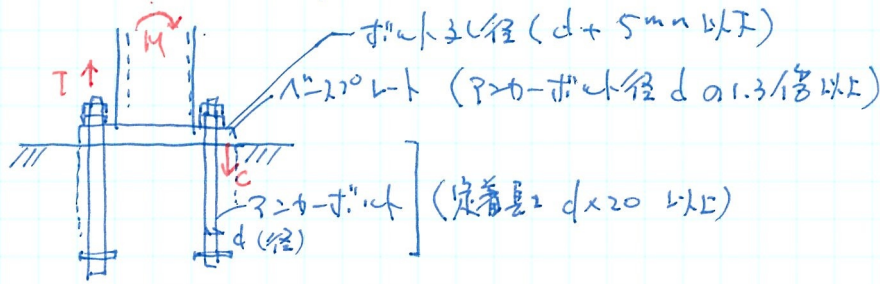 ボルト孔径(d+5mm以下)
M
T
ベースプレート (アンカーボルト径dの1.3倍以上)
C
アンカーボルト (定着長さ d×20 以上)
d(径)